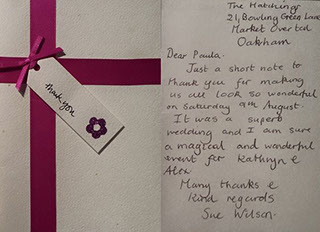 thank you
The Hatchings
21, Bowling Green Lane
Market Overton
Oakham
Dear Paula.
Just a short note to
thank you for making
us all look so wonderful
on Saturday 9th August.
It was a superb
wedding and I am sure
a magical and wonderful
event for Kathryn &
Alex
Many thanks &
Kind regards
Sue Wilson.